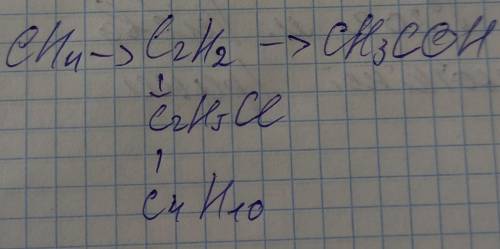 CH4 -> C2H2 -> CH3COH
C2H5Cl
C4H10